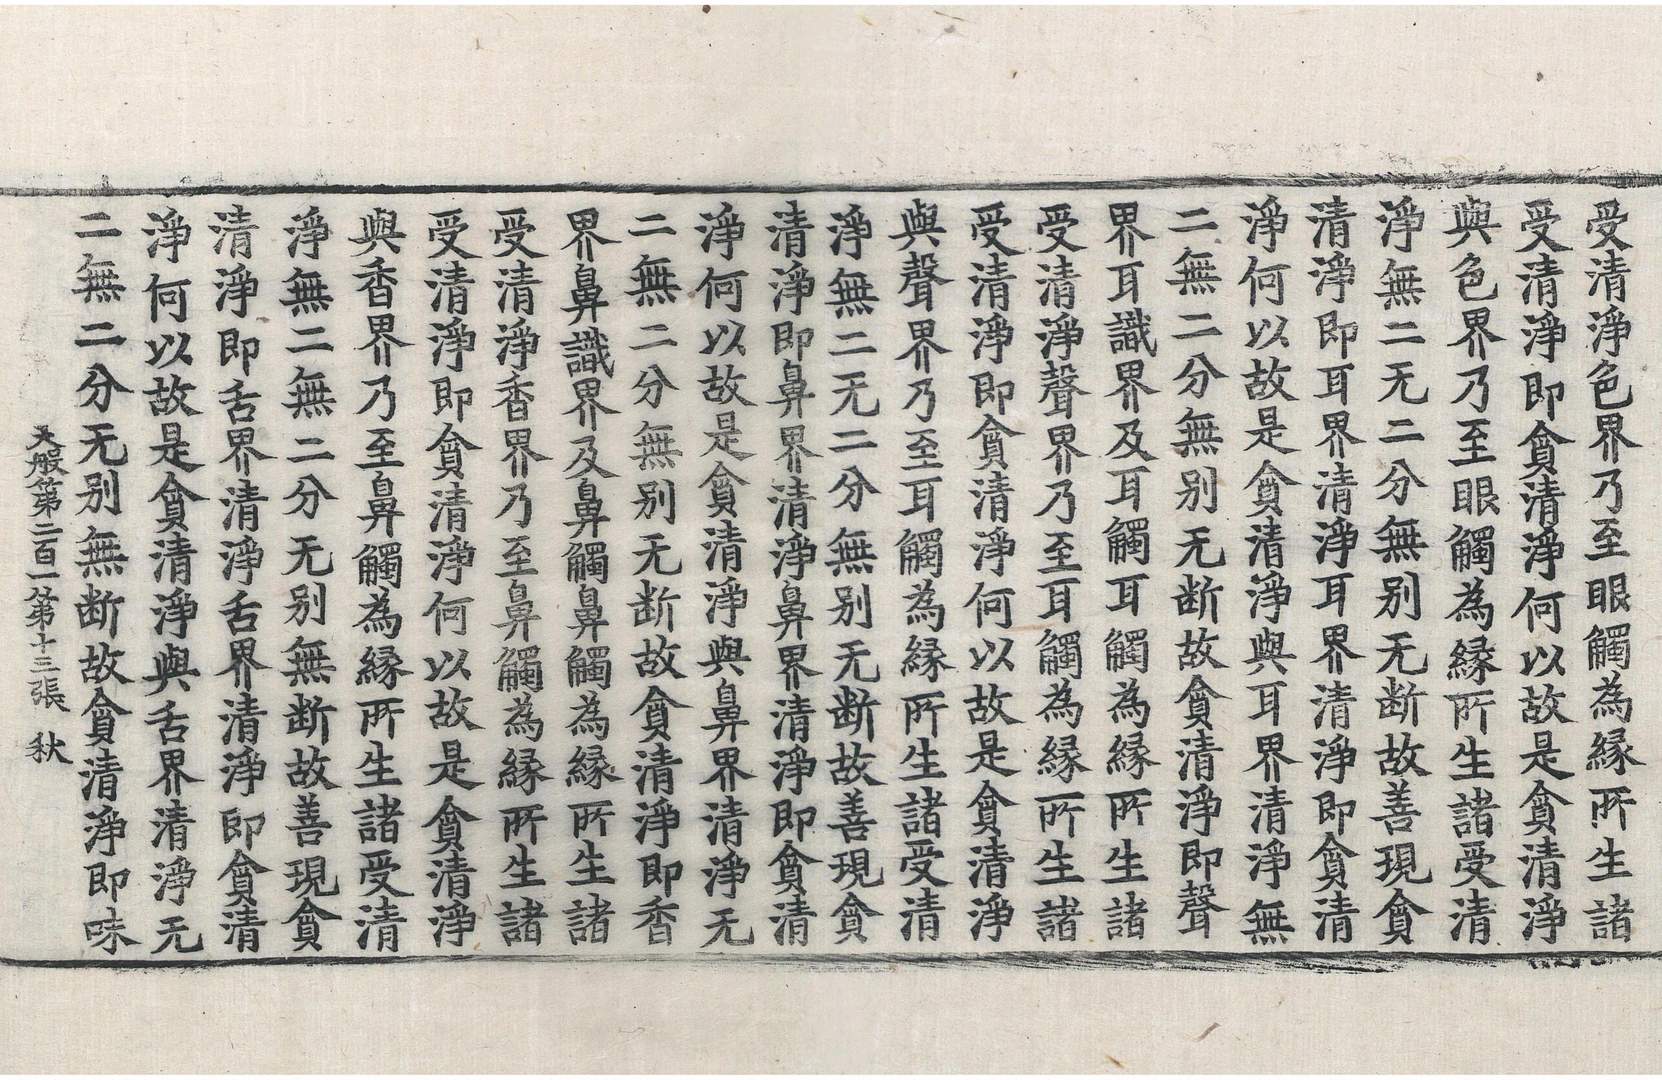 受清淨色界乃至眼觸為縁所生諸
受清淨即貪清淨何以故是貪清淨
與色界乃至眼觸為縁所生諸受清
淨無二无二分無别无断故善現貪
清淨即耳界清淨耳界清淨即貪清
淨何以故是貪清淨與耳界清淨無
二無二分無别无断故貪清淨即聲
界耳識界及耳觸耳觸為縁所生諸
受清淨聲界乃至耳觸為縁所生諸
受清淨即貪清淨何以故是貪清淨
與聲界乃至耳觸為縁所生諸受清
淨無二无二分無别无断故善現貪
清淨即鼻界清淨鼻界清淨即貪清
淨何以故是貪清淨與鼻界清淨无
二無二分無别无断故貪清淨即香
界鼻識界及鼻觸鼻觸為縁所生諸
受清淨香界乃至鼻觸為縁所生諸
受清淨即貪清淨何以故是貪清淨
與香界乃至鼻觸為縁所生諸受清
淨無二無二分无别無断故善現貪
清淨即舌界清淨舌界清淨即貪清
淨何以故是貪清淨與舌界清淨无
二無二分无别無断故貪清淨即味
大般第二百一第十三張 秋